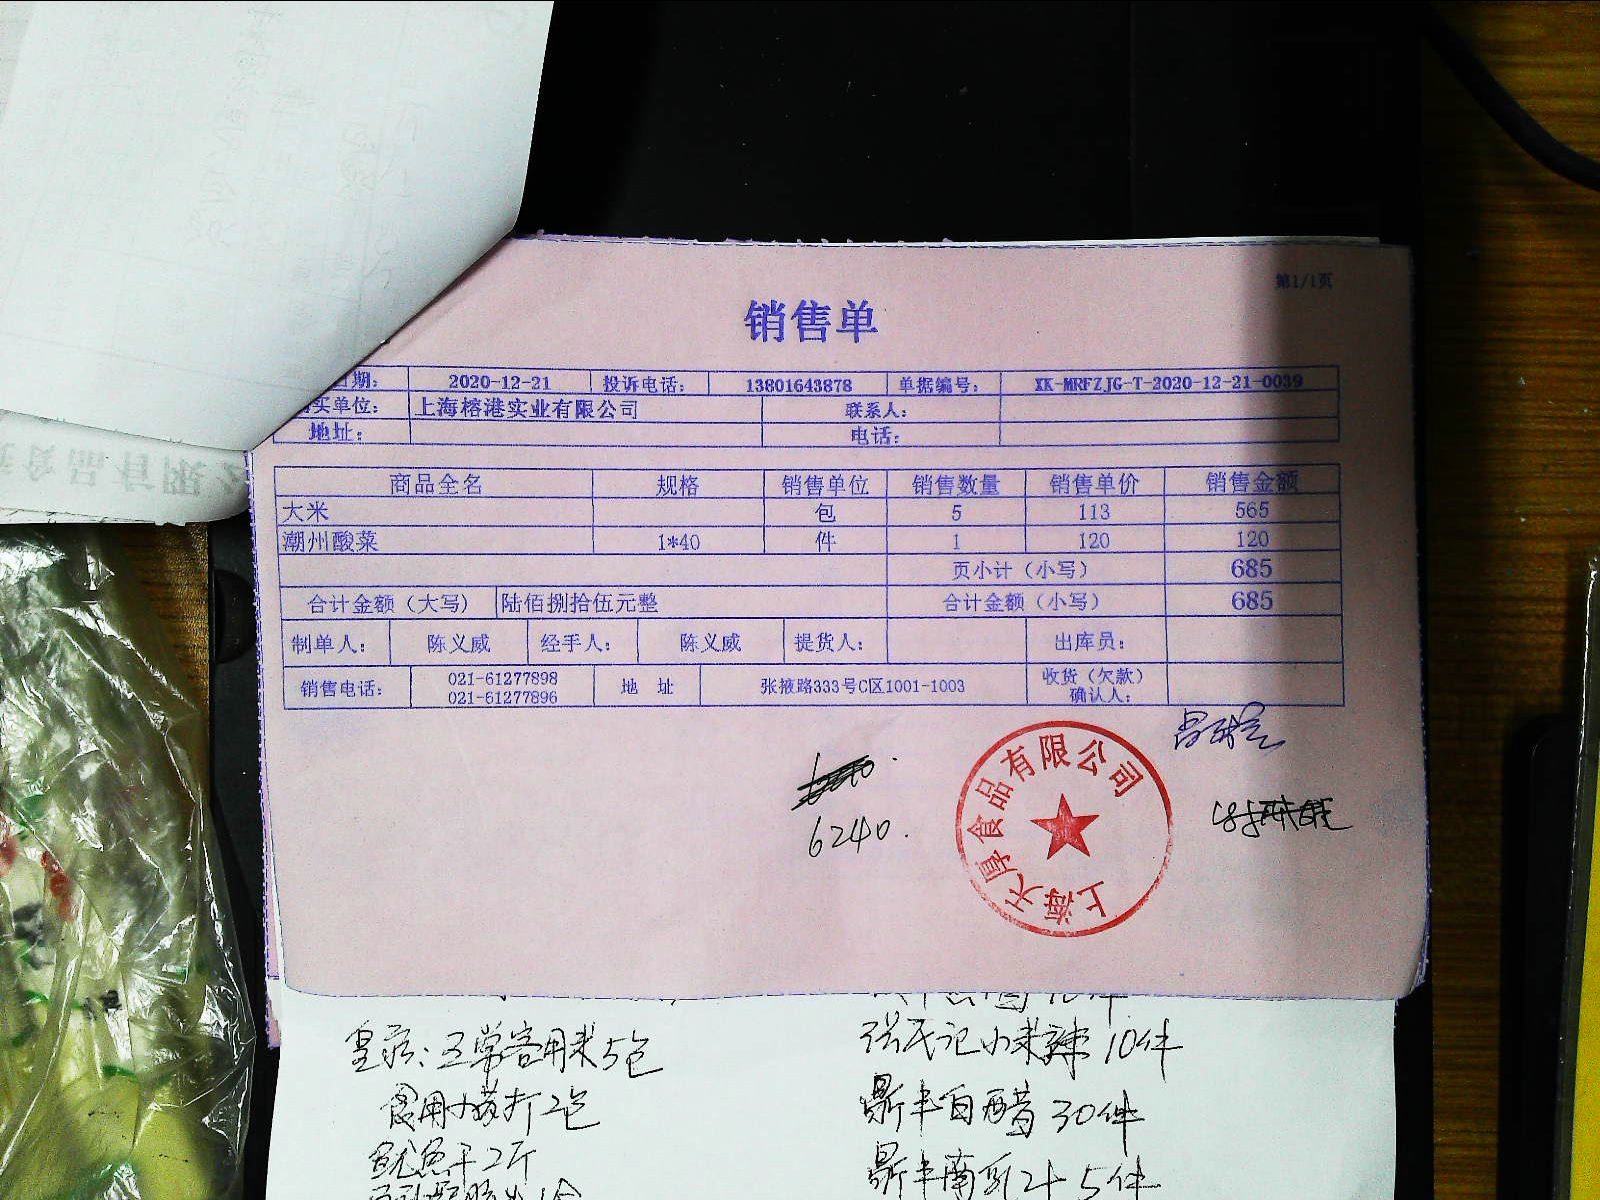 第1/1页
销售单
日期： 2020-12-21 投诉电话： 13801643878 单据编号： XK-MRFZJG-T-2020-12-21-0039
买单位： 上海榕港实业有限公司 联系人：
地址： 电话：
商品全名 规格 销售单位 销售数量 销售单价 销售金额
大米 包 5 113 565
潮州酸菜 1*40 件 1 120 120
页小计（小写） 685
合计金额（大写） 陆佰捌拾伍元整 合计金额（小写） 685
制单人： 陈义威 经手人： 陈义威 提货人： 出库员：
销售电话： 021-61277898 021-61277896 地 址 张掖路333号C区1001-1003 收货（欠款）确认人：
6240.
上海天厚食品有限公司
食品有限公
5包
张氏记小米辣10件
食用 2包
鼎丰白醋30件
鱿鱼干2斤
鼎丰南乳汁5件